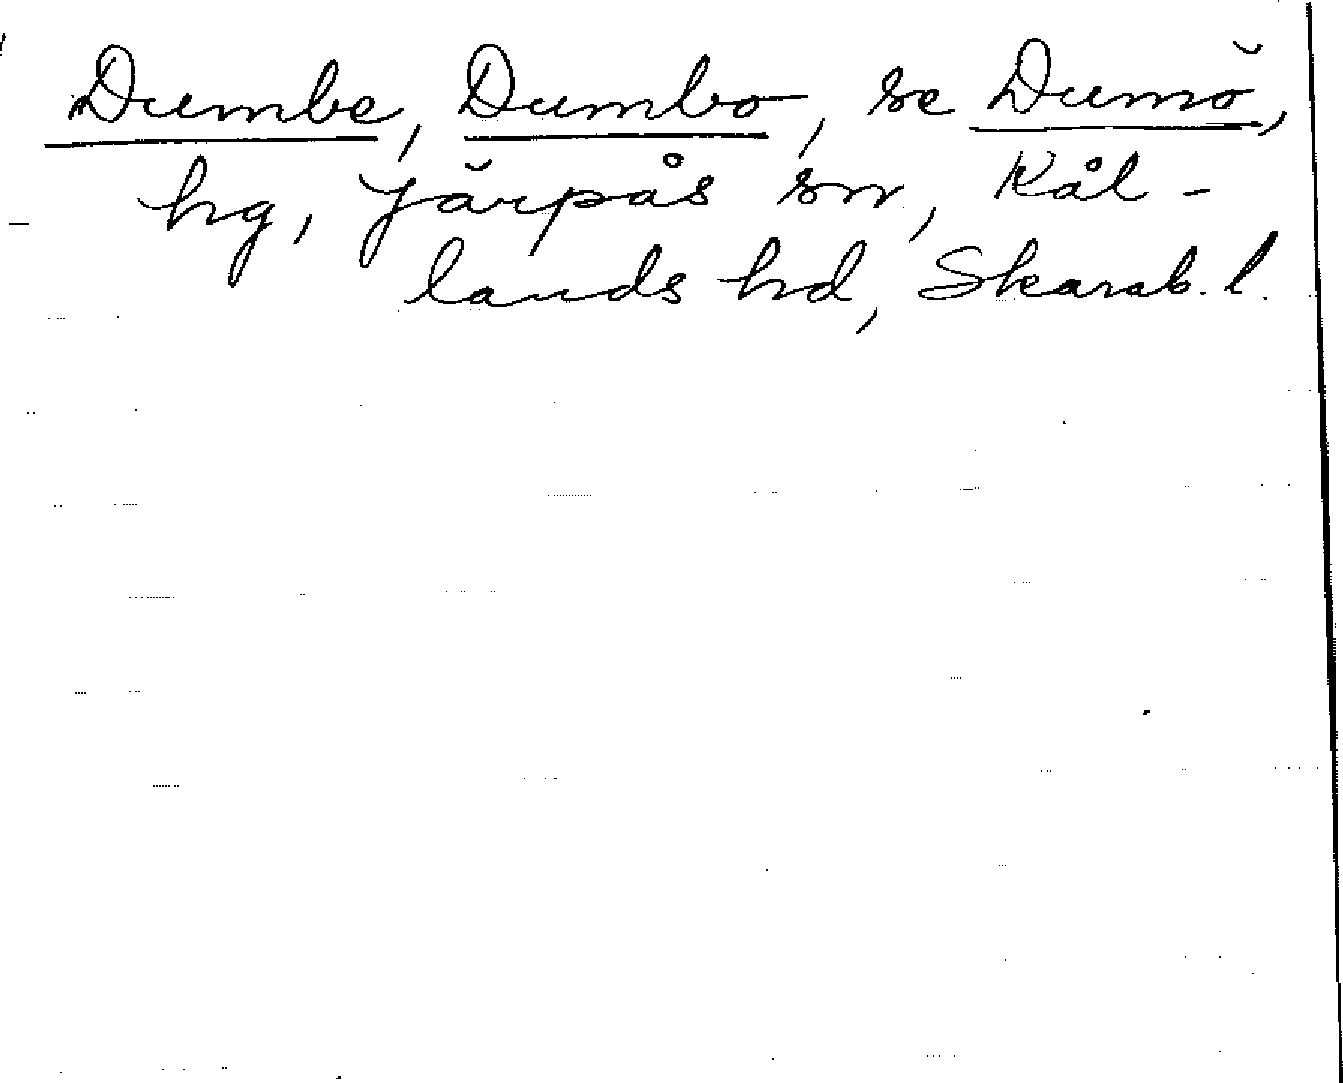 Dumbe, Dumbo, se Dumö,
hg, Järpås sn, Kål-
lands hd, Skarab. l.